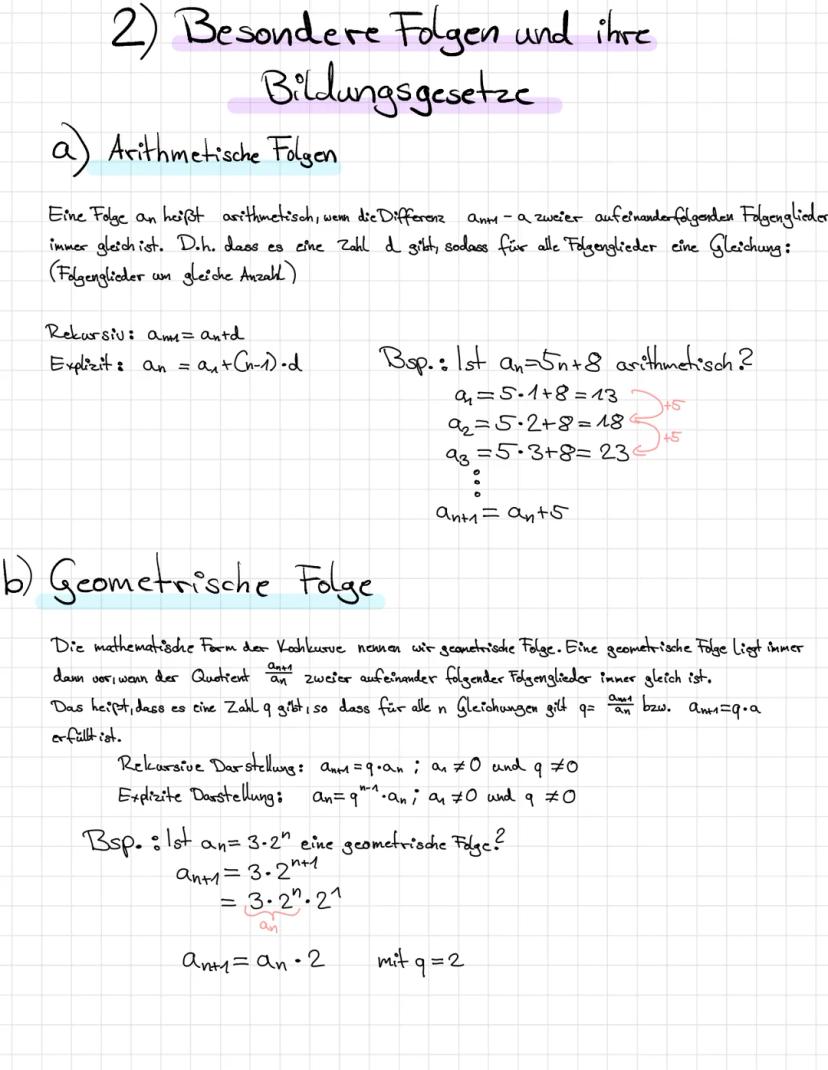 2) Besondere Folgen und ihre
Bildungsgesetze
a) Arithmetische Folgen
Eine Folge an heißt arithmetisch, wenn die Differenz an+1 - a zweier aufeinanderfolgenden Folgenglieder
immer gleich ist. D.h. dass es eine Zahl d gibt, sodass für alle Folgenglieder eine Gleichung:
(Folgenglieder um gleiche Anzahl)
Rekursiv: an+1 = an+d
Explizit: an = a1+(n-1)·d
Bsp.: Ist an=5n+8 arithmetisch?
a1 = 5·1+8 = 13
+5
a2 = 5·2+8 = 18
+5
a3 = 5·3+8 = 23
⋮
an+1 = an+5
b) Geometrische Folge
Die mathematische Form der Kochkurve nennen wir geometrische Folge. Eine geometrische Folge liegt immer
dann vor, wenn der Quotient an+1/an zweier aufeinander folgender Folgenglieder immer gleich ist.
Das heißt, dass es eine Zahl q gibt, so dass für alle n Gleichungen gilt q= an+1/an bzw. an+1=q·a
erfüllt ist.
Rekursive Darstellung: an+1 = q·an ; a1 ≠0 und q ≠0
Explizite Darstellung: an= q^n-1·an ; a1 ≠0 und q ≠0
Bsp.: Ist an= 3·2^n eine geometrische Folge?
an+1 = 3·2^n+1
= 3·2^n·2^1
an
an+1 = an · 2 mit q = 2